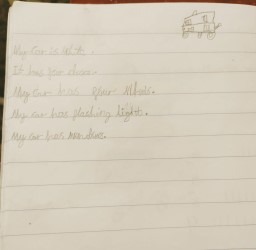 My car is
It has four doors.
My car has four Wheels.
My car has flashing light.
My car has